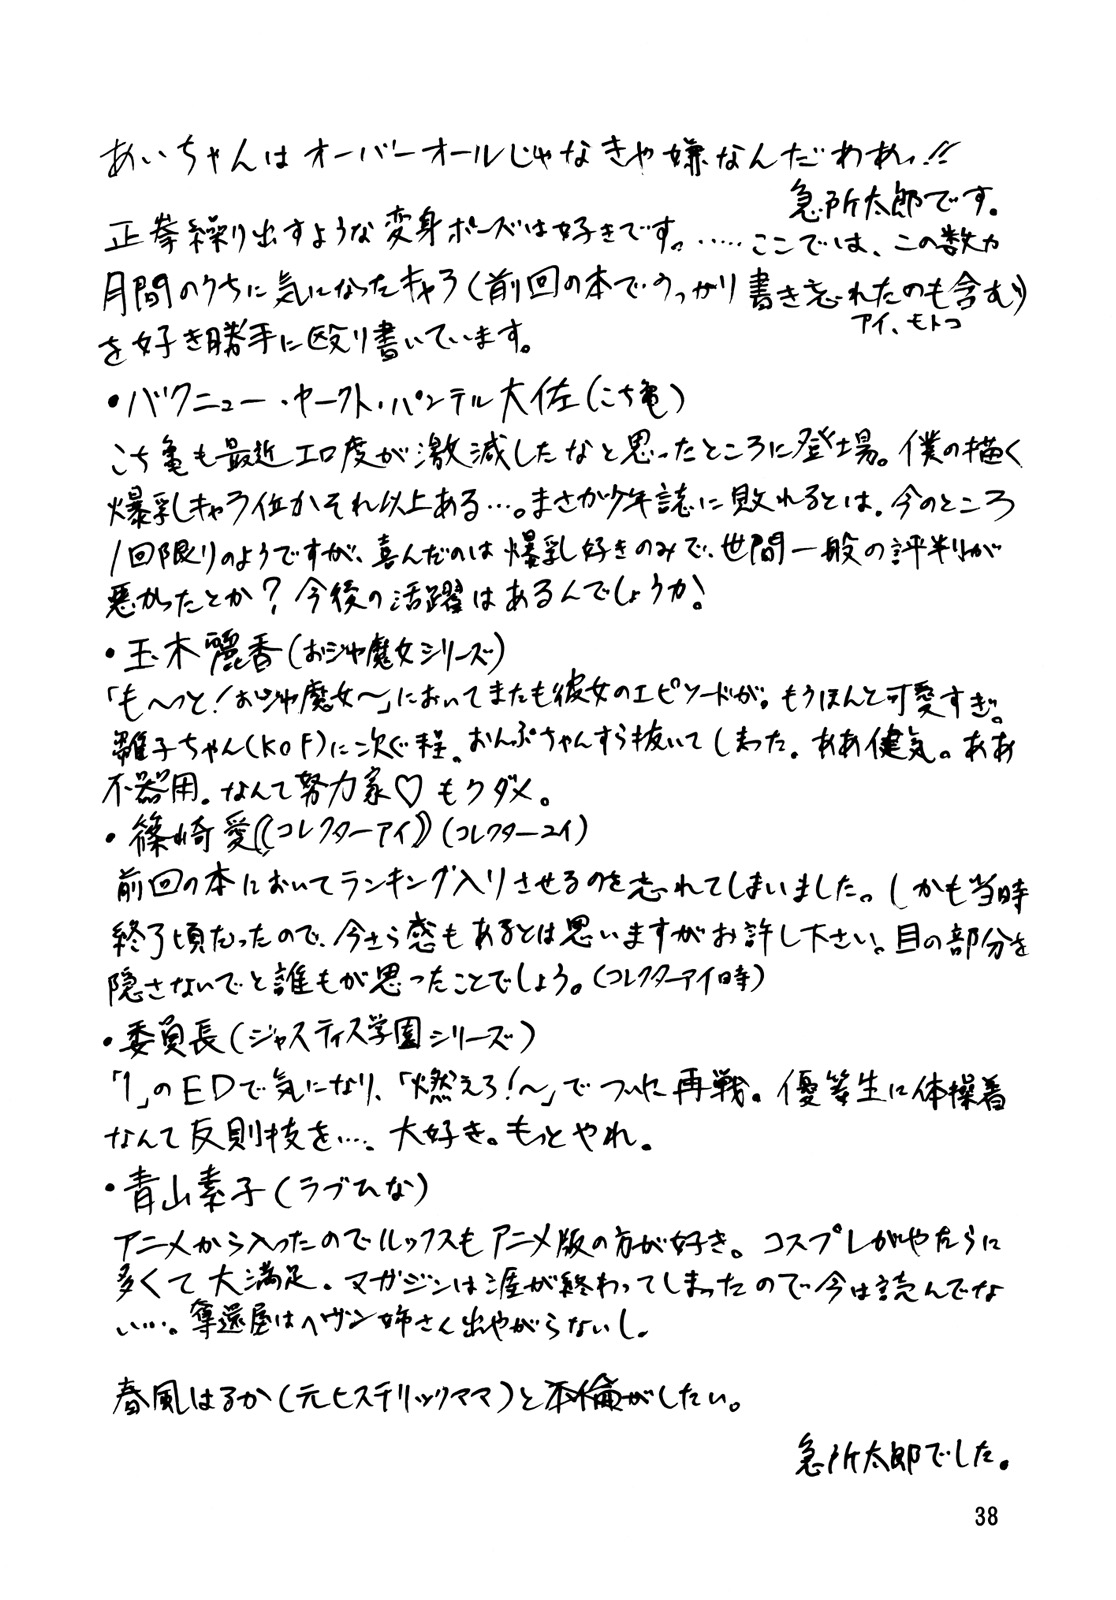 あいちゃんはオーバーオールじゃなきゃ嫌なんだわあっ!!
急所太郎です。
正拳繰り出すような変身ポーズは好きです。・・・・・ここでは、この数ヵ
月間のうちに気になったキャラ(前回の本でうっかり書き忘れたのも含む)
アイ、モトコ
を好き勝手に殴り書いています。
・バクニュー・ヤークト・パンテル大佐(こち亀)
こち亀も最近エロ度が激減したなと思ったところに登場。僕の描く
爆乳キャラ位かそれ以上ある…。まさか少年誌に敗れるとは。今のところ
1回限りのようですが、喜んだのは爆乳好きのみで、世間一般の評判が
悪かったとか?今後の活躍はあるんでしょうか!
・玉木麗香(おジャ魔女シリーズ)
「も〜っと!おジャ魔女〜」においてまたも彼女のエピソードが。もうほんと可愛すぎ。
雛子ちゃん(KOF)に次ぐ程。おんぷちゃんすら抜いてしまった。ああ健気。ああ
不器用。なんて努力家♡もうダメ。
・篠崎愛《コレクターアイ》(コレクターユイ)
前回の本においてランキング入りさせるのを忘れてしまいました。しかも当時
終了頃だったので、今さら感もあるとは思いますがお許し下さい。目の部分を
隠さないでと誰もが思ったことでしょう。(コレクターアイ時)
・委員長(ジャスティス学園シリーズ)
「1」のEDで気になり、「燃えろ!〜」でついに再戦。優等生に体操着
なんて反則技を…、大好き。もっとやれ。
・青山素子(ラブひな)
アニメから入ったのでルックスもアニメ版の方が好き。コスプレがやたらに
多くて大満足。マガジンは涯が終わってしまったので今は読んでな
い…。奪還屋はヘヴン姉さん出やがらないし。
春風はるか(元ヒステリックママ)と不倫がしたい。
急所太郎でした。
38